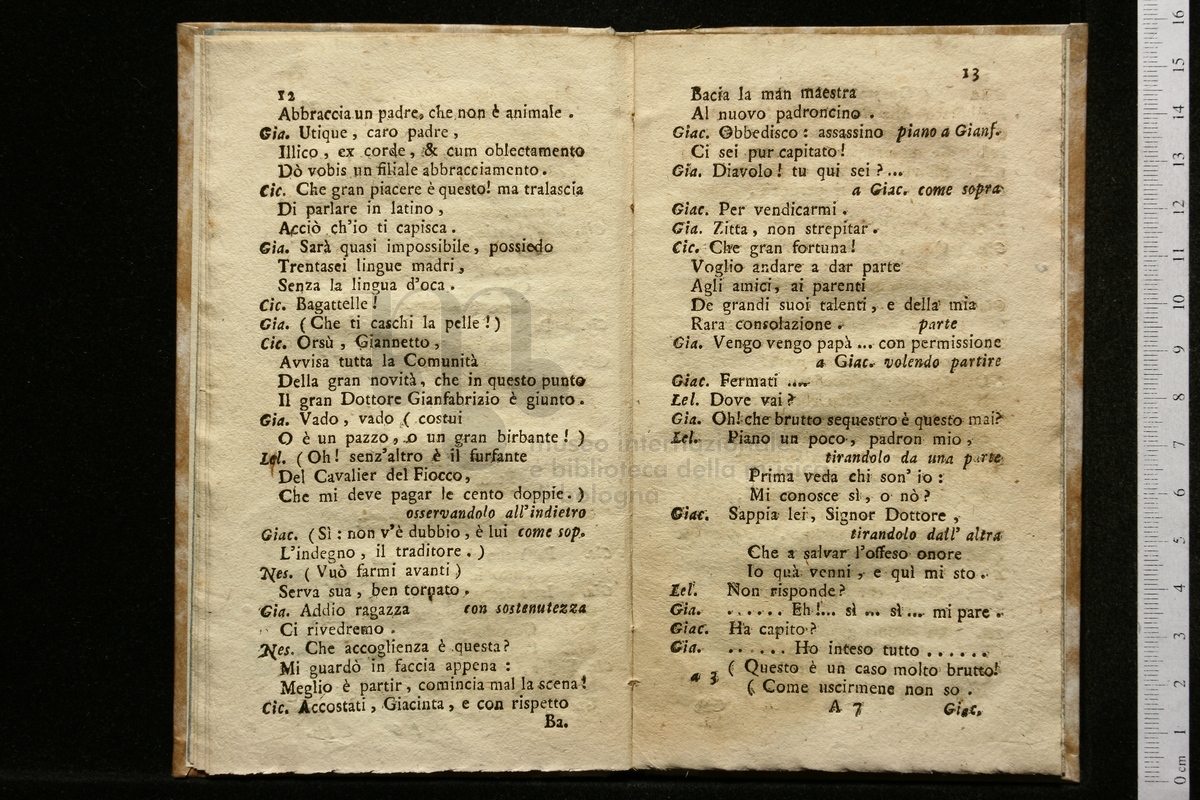 12
Abbraccia un padre, che non è animale .
Gia. Utique , caro padre ,
Illico , ex corde , & cum oblectamento
Dò vobis un filiale abbracciamento .
Cic. Che gran piacere è questo! ma tralascia
Di parlare in latino ,
Acciò ch'io ti capisca .
Gia. Sarà quasi impossibile , possiedo
Trentasei lingue madri ,
Senza la lingua d'oca .
Cic. Bagattelle !
Gia. ( Che ti caschi la pelle ! )
Cic. Orsù , Giannetto ,
Avvisa tutta la Comunità
Della gran novità , che in questo punto
Il gran Dottore Gianfabrizio è giunto .
Gia. Vado , vado ( costui
O è un pazzo , o un gran birbante ! )
Lel. ( Oh ! senz'altro è il furfante
Del Cavalier del Fiocco ,
Che mi deve pagar le cento doppie. )
osservandolo all'indietro
Giac. ( Sì : non v'è dubbio , è lui come sop.
L'indegno , il traditore . )
Nes. ( Vuò farmi avanti )
Serva sua , ben tornato .
Gia. Addio ragazza con sostenutezza
Ci rivedremo .
Nes. Che accoglienza è questa?
Mi guardò in faccia appena :
Meglio è partir , comincia mal la scena!
Cic. Accostati , Giacinta , e con rispetto
Ba.
13
Bacia la man maestra
Al nuovo padroncino .
Giac. Obbedisco : assassino piano a Gianf.
Ci sei pur capitato !
Gia. Diavolo ! tu qui sei ? ...
a Giac. come sopra
Giac. Per vendicarmi .
Gia. Zitta , non strepitar .
Cic. Che gran fortuna !
Voglio andare a dar parte
Agli amici, ai parenti
De grandi suoi talenti , e della mia
Rara consolazione . parte
Gia. Vengo vengo papà ... con permissione
a Giac. volendo partire
Giac. Fermati ....
Lel. Dove vai ?
Gia. Oh! che brutto sequestro è questo mai?
Lel. Piano un poco , padron mio ,
tirandolo da una parte
Prima veda chi son' io :
Mi conosce sì , o nò ?
Giac. Sappia lei , Signor Dottore ,
tirandolo dall' altra
Che a salvar l'offeso onore
Io quà venni , e quì mi sto .
Lel. Non risponde ?
Gia. ...... Eh !... sì ... sì ... mi pare .
Giac. Ha capito ?
Gia. ...... Ho inteso tutto ......
a 3 ( Questo è un caso molto brutto!
( Come uscirmene non so .
A 7 Giac.
museo internazionale
e biblioteca della musica
di bologna
0 cm 1 2 3 4 5 6 7 8 9 10 11 12 13 14 15 16